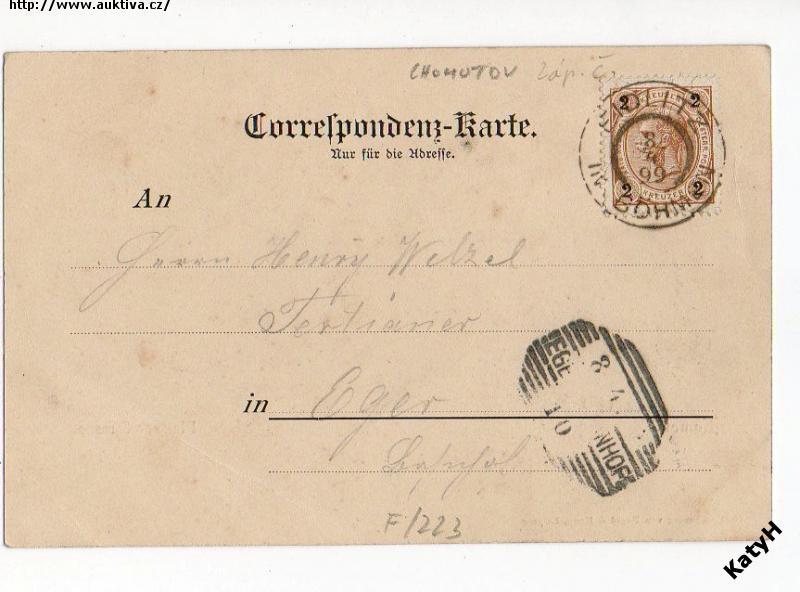 http://www.auktiva.cz/
CHOMUTOV záp. Č.
Correspondenz-Karte.
Nur für die Adresse.
2 2
KREUZER
2 2
99
An
Herrn Henry Welzel
Tertianer
in Eger
Bahnhof
8 4
10
F/223
KatyH